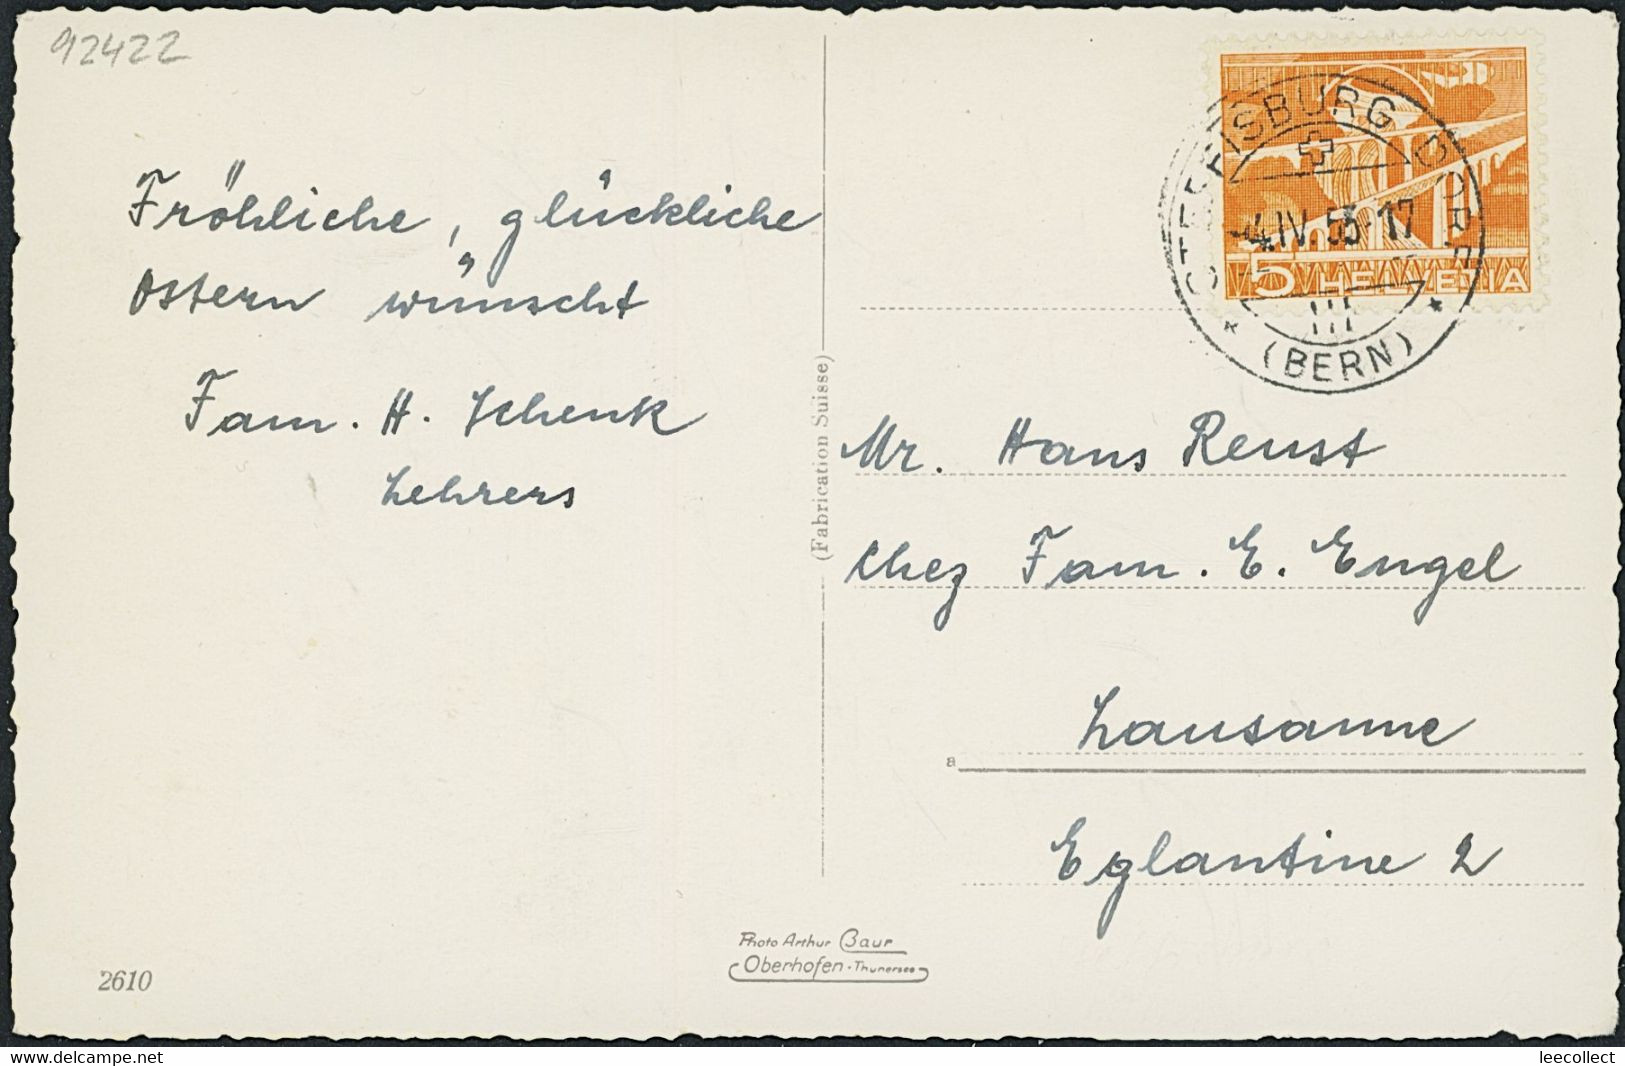 92422
Fröhliche, glückliche
Ostern wünscht
Fam. H. Schenk
Lehrers
2610
(Fabrication Suisse)
Photo Arthur Baur
Oberhofen - Thunersee
STEFFISBURG DORF
-4.IV.55-17
(BERN)
5 HELVETIA
Mr. Hans Reust
Chez Fam. E. Engel
Lausanne
a
Eglantine 2
www.delcampe.net
leecollect